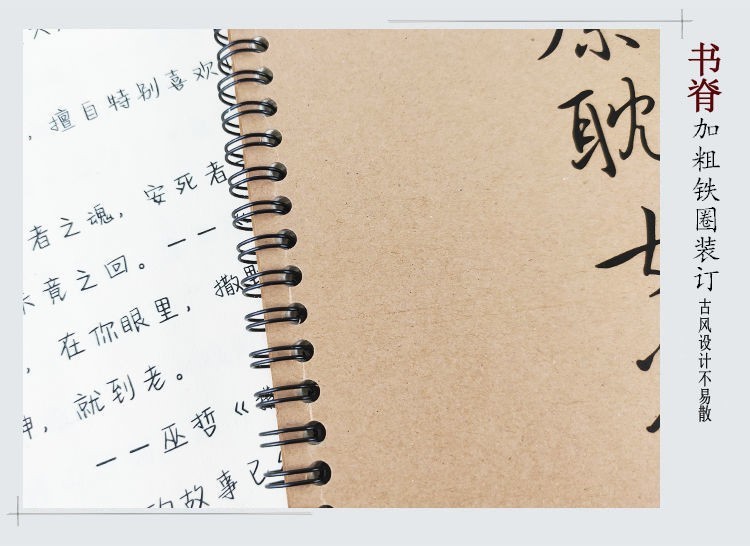 ，擅自特别喜欢
安死者
者之魂，
未竟之回。——
，在你眼里，撒野
神，就到老。
——巫哲《撒
的故事已
原耽
书脊
加粗铁圈装订
古风设计不易散